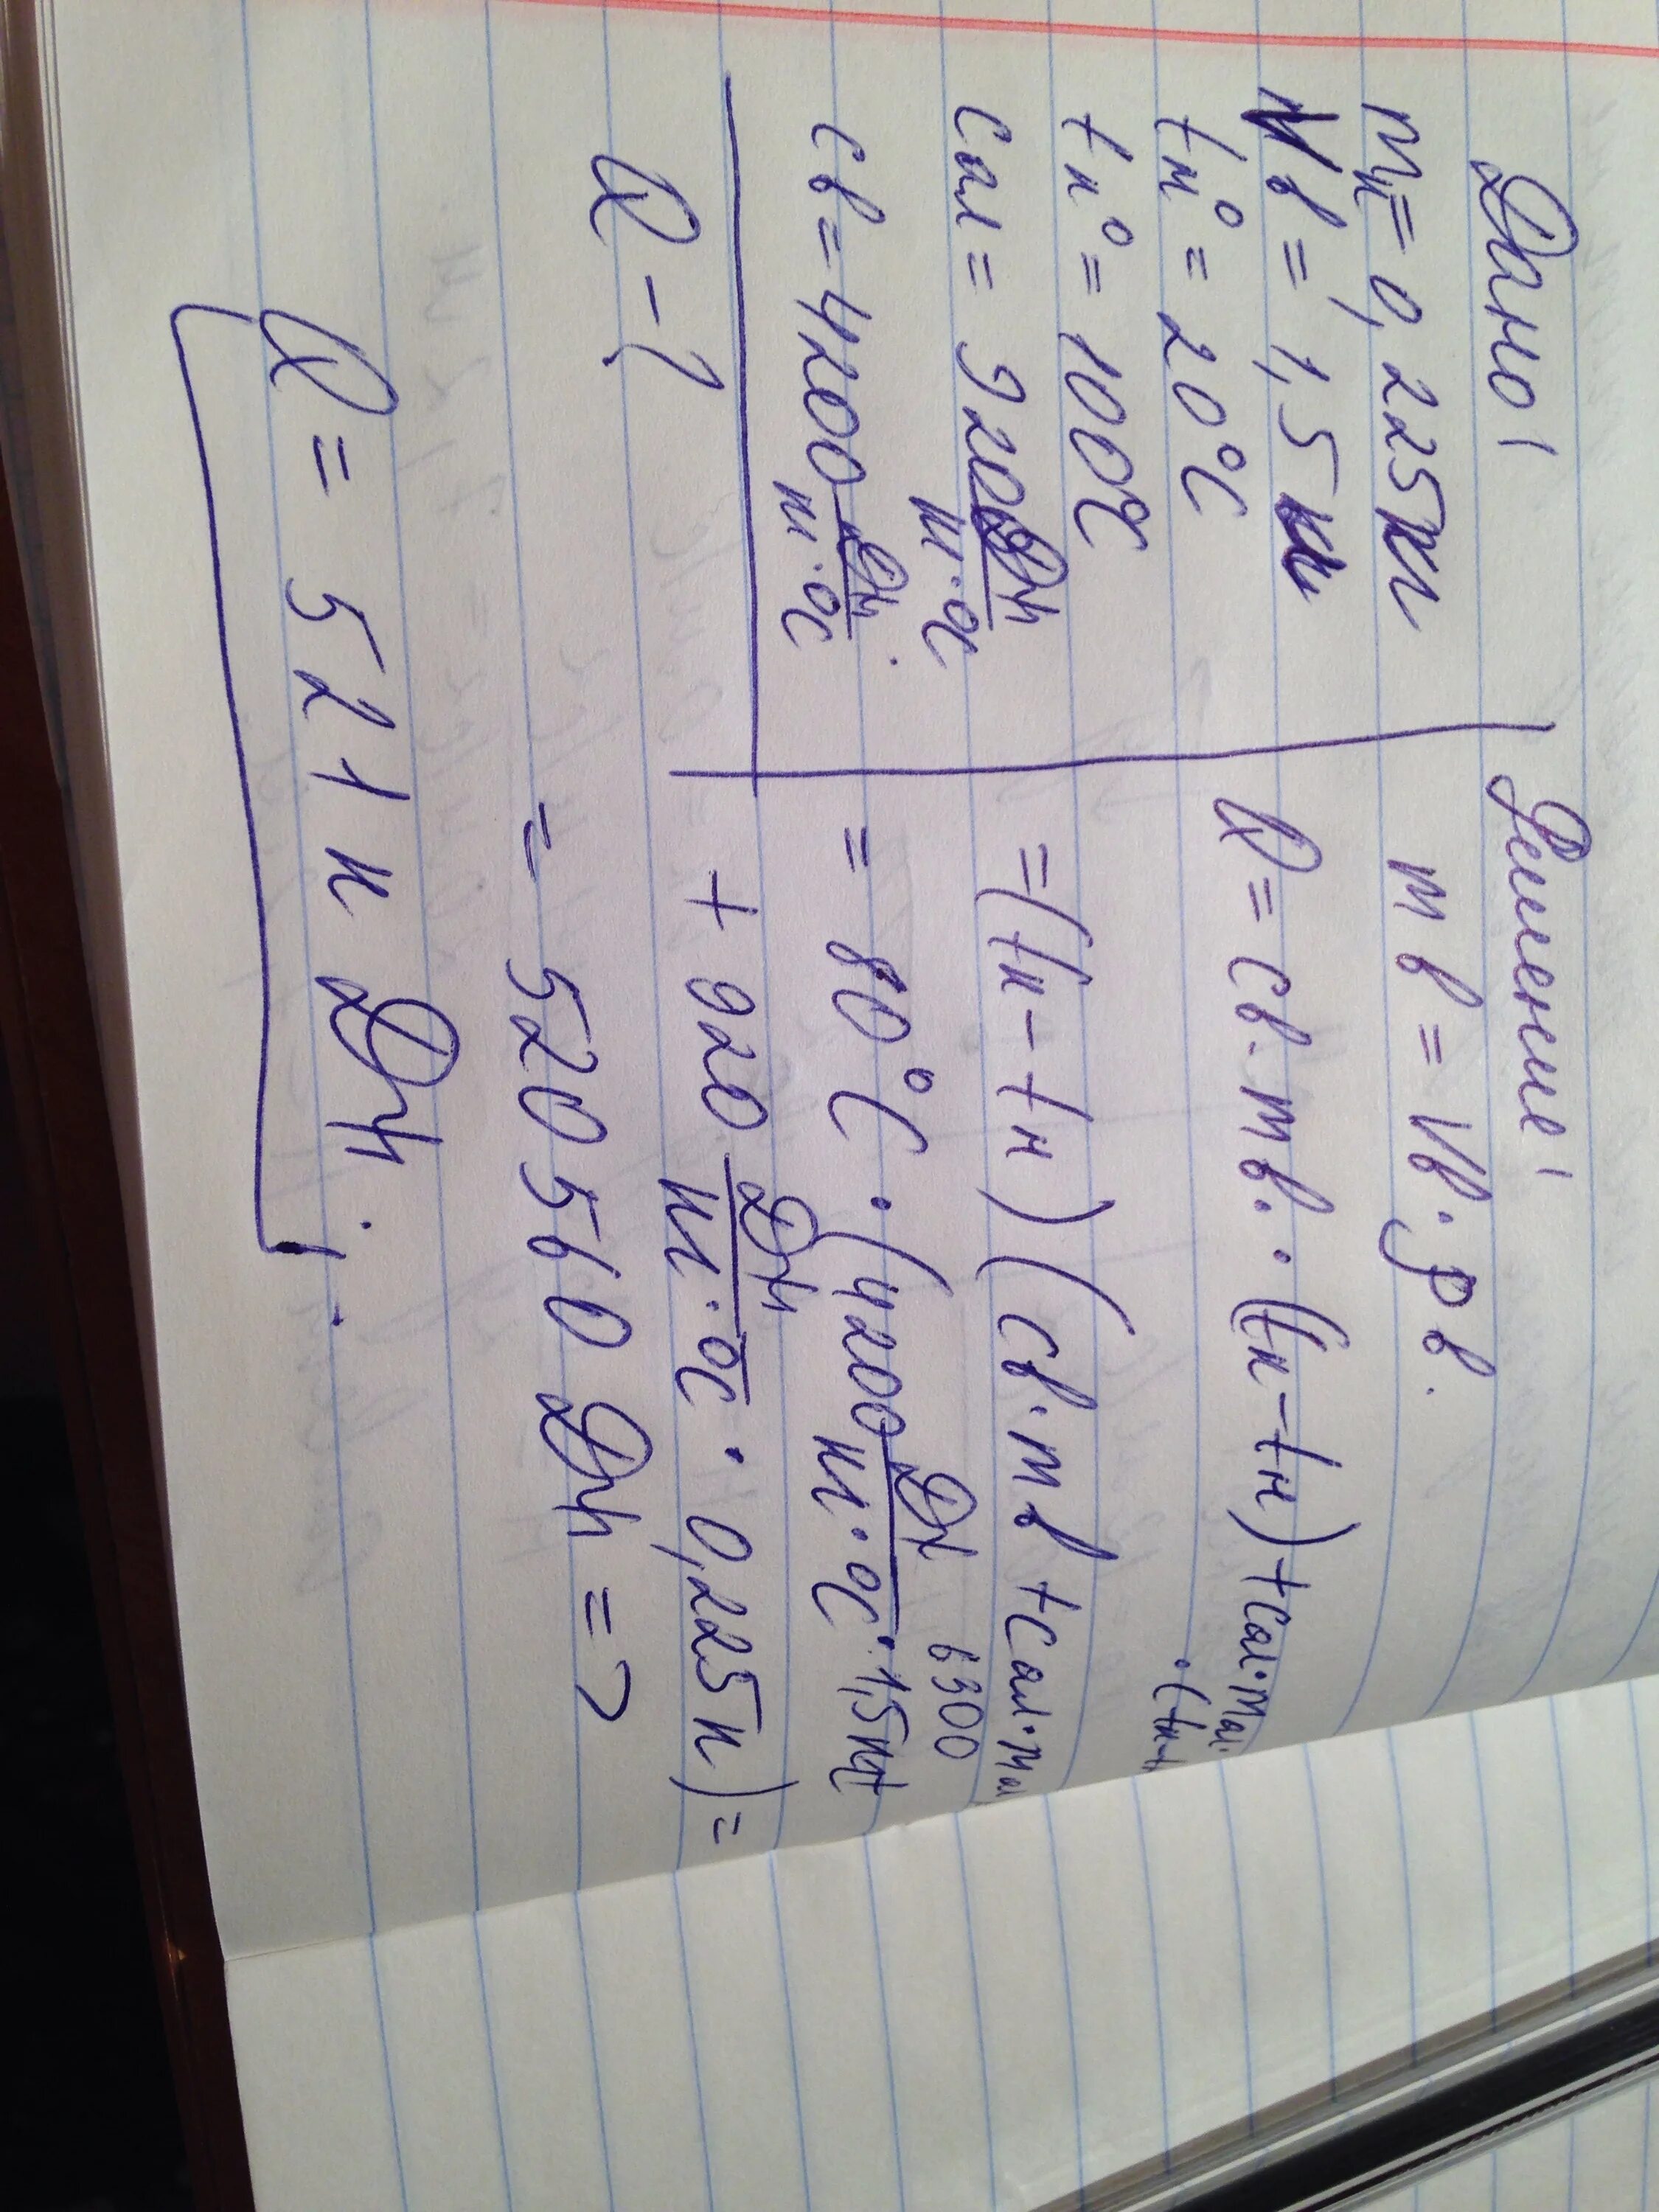 Дано!
mк= 0,225кг
Vв = 1,5
tн° = 20°C
tк° = 100°C
Cал = 920 Дж/кг·°C
Cв = 4200 Дж/кг·°C.
Q - ?
Решение!
m в = Vв · ρ в.
Q = Cв · mв. · (tк - tн) + Cал · Mал.
· (tк - t
= (tк - tн) (Cв · m в + Cал · M ал
6300
= 80°C · (4200 Дж/кг·°C · 1,5кг
+ 920 Дж/кг·°C · 0,225к) =
= 520560 Дж =>
Q = 521 к Дж.